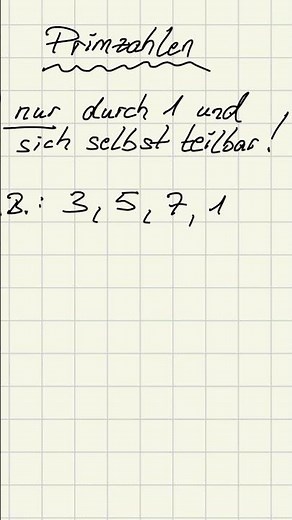 Primzahlen
nur durch 1 und
sich selbst teilbar!
.B.: 3, 5, 7, 1